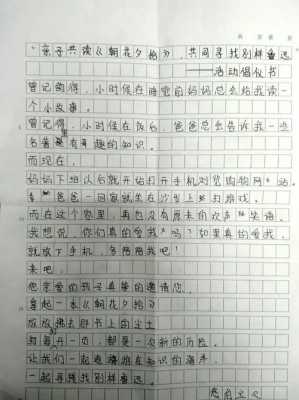 "亲子共读《朝花夕拾》，共同寻找别样鲁迅
——活动倡议书
曾记得，小时候在睡觉前妈妈总会给我读一
个小故事。
曾记得，小时候在饭后，爸爸总会告诉我一些
名著里有趣的知识。
而现在，
妈妈下班以后就开始打开手机浏览购物网站，
爸爸一回家就坐在沙发上打游戏。
而在这个家里，再也没有原来的欢声笑语。
我想说，你们真的爱我吗？如果真的爱我，
就放下手机，多陪陪我吧！
来吧，
您亲爱的孩子真挚的邀请您，
拿起一本《朝花夕拾》
放放拂去那书上的尘土
每每开一页，都是一次新的历险。
让我们一起遨游在知识的海洋
一起寻找别样鲁迅。